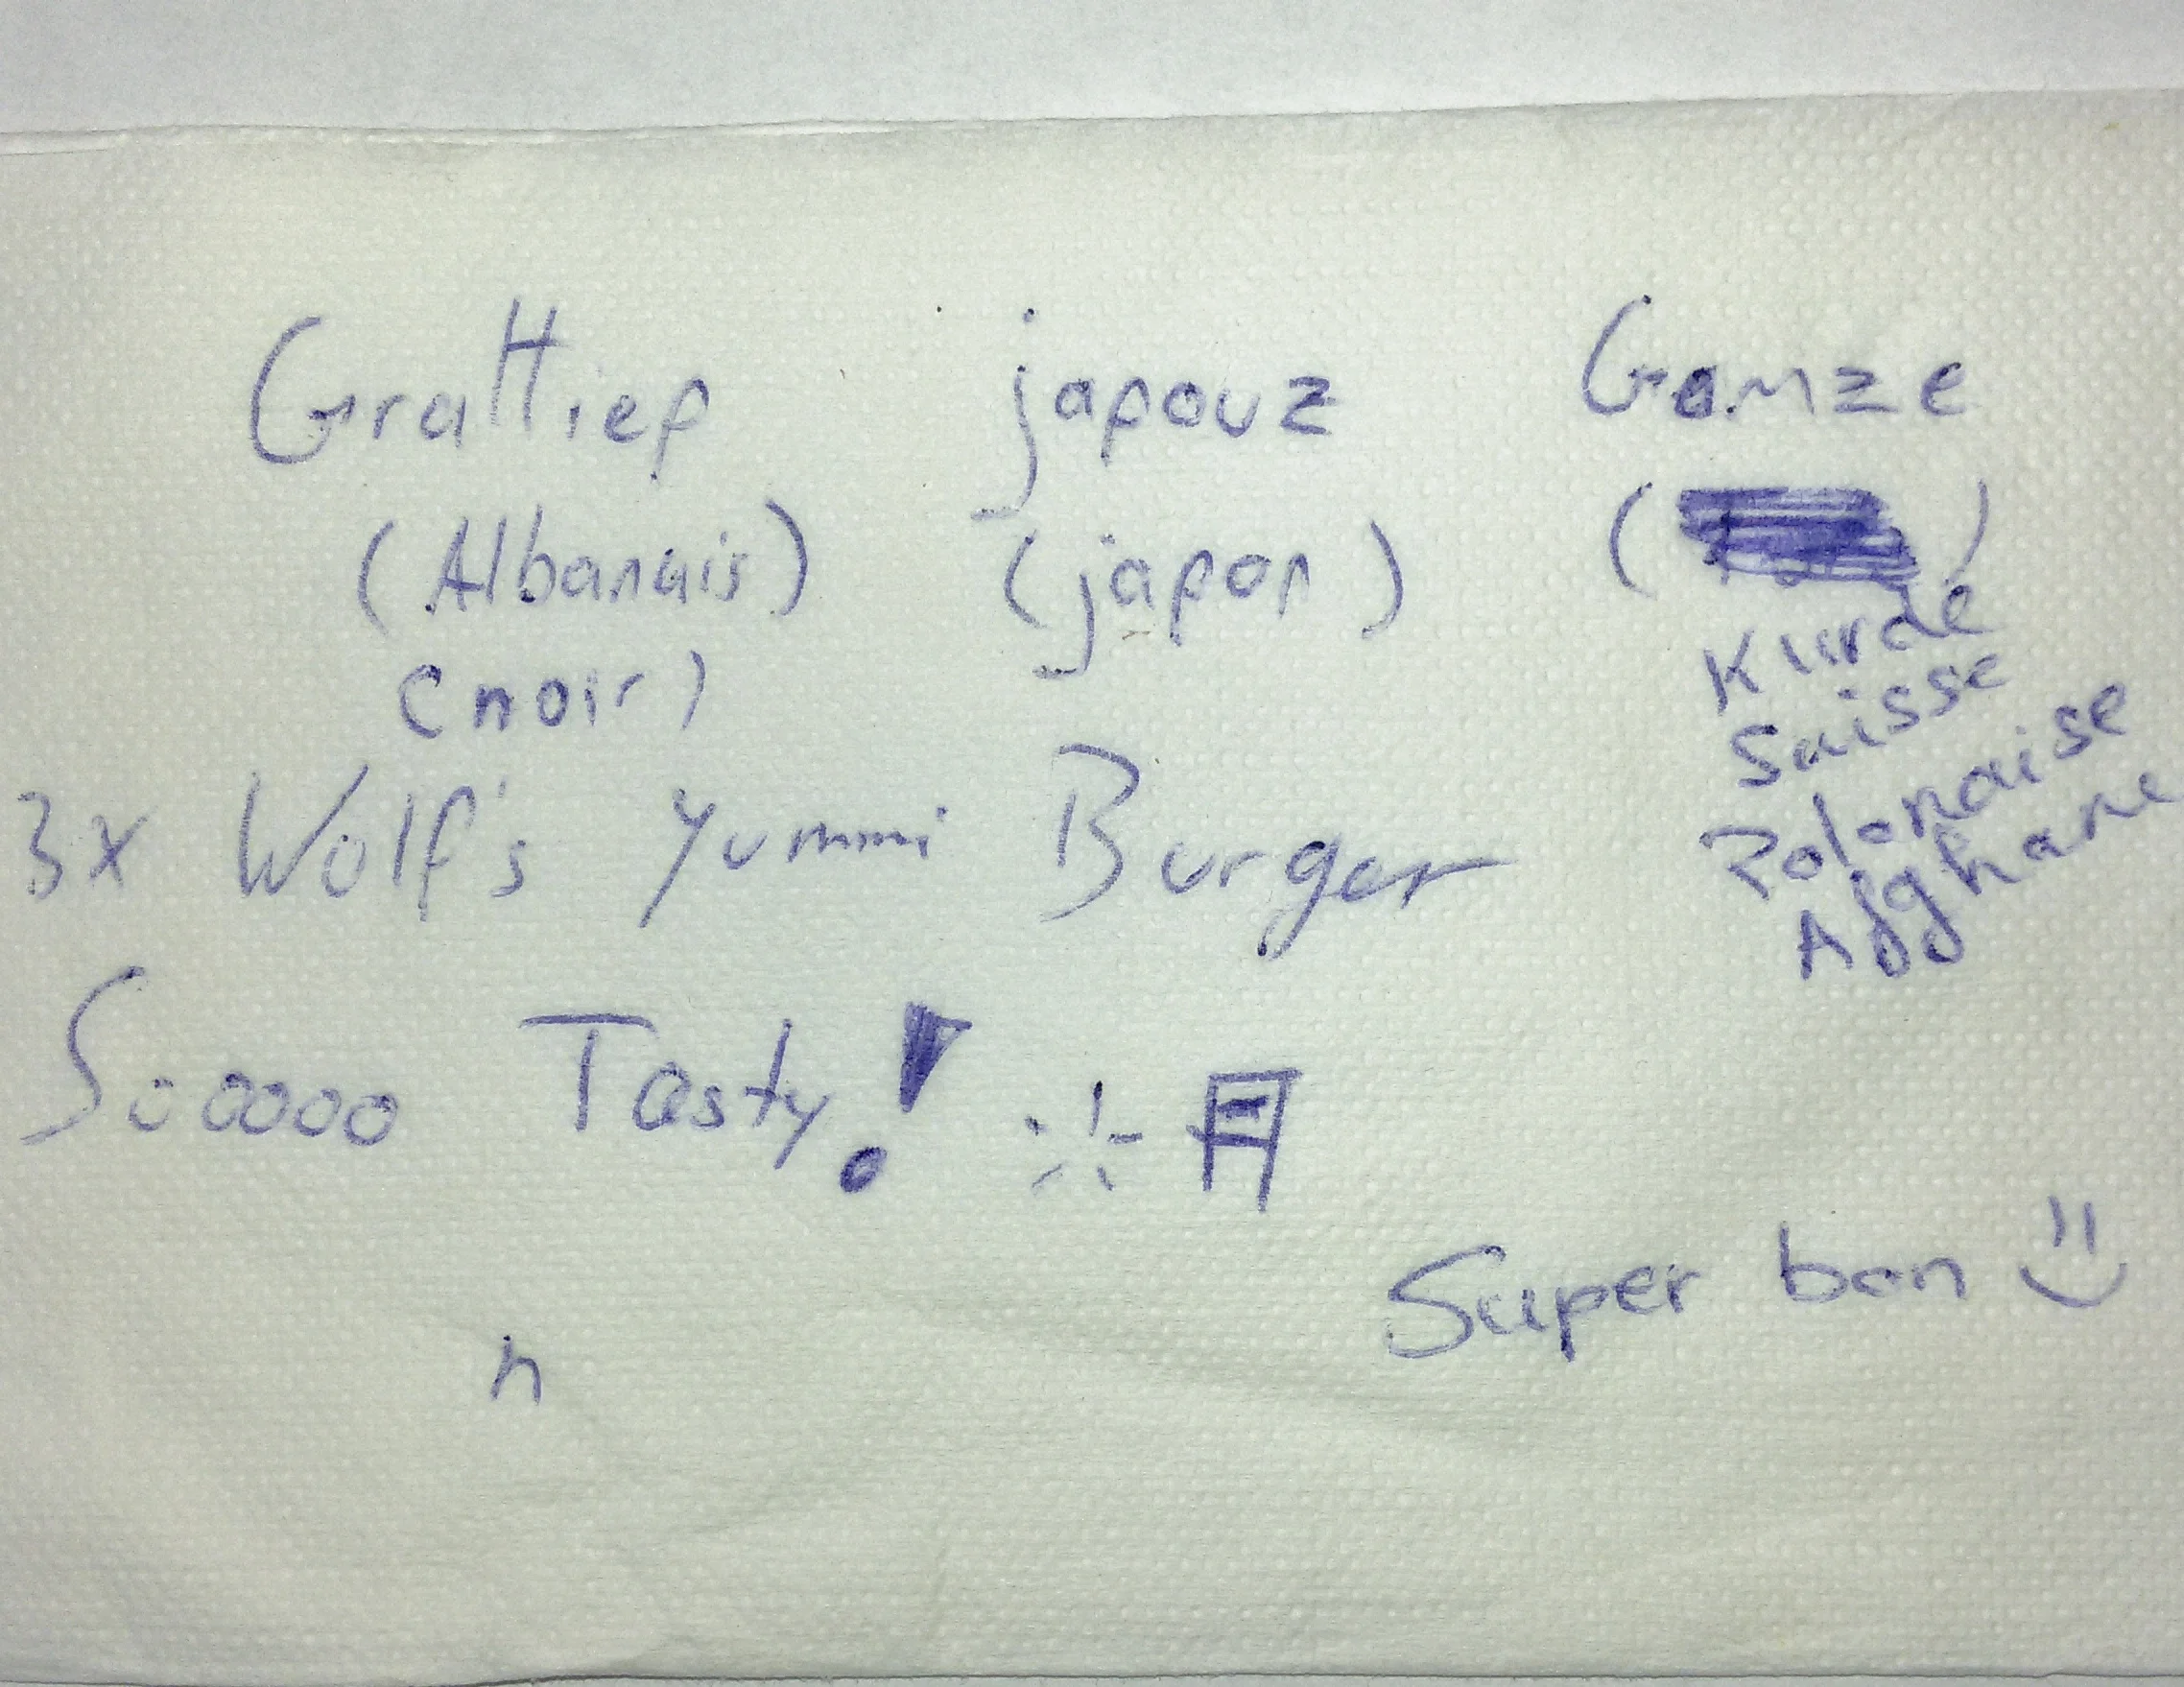 Grattiep japouz Gamze
(Albanais) (japon) ( )
(noir)
Kurde
Suisse
Polonaise
Afghane
3x Wolf's Yummi Burger
Soooooo Tasty!
Super bon
n